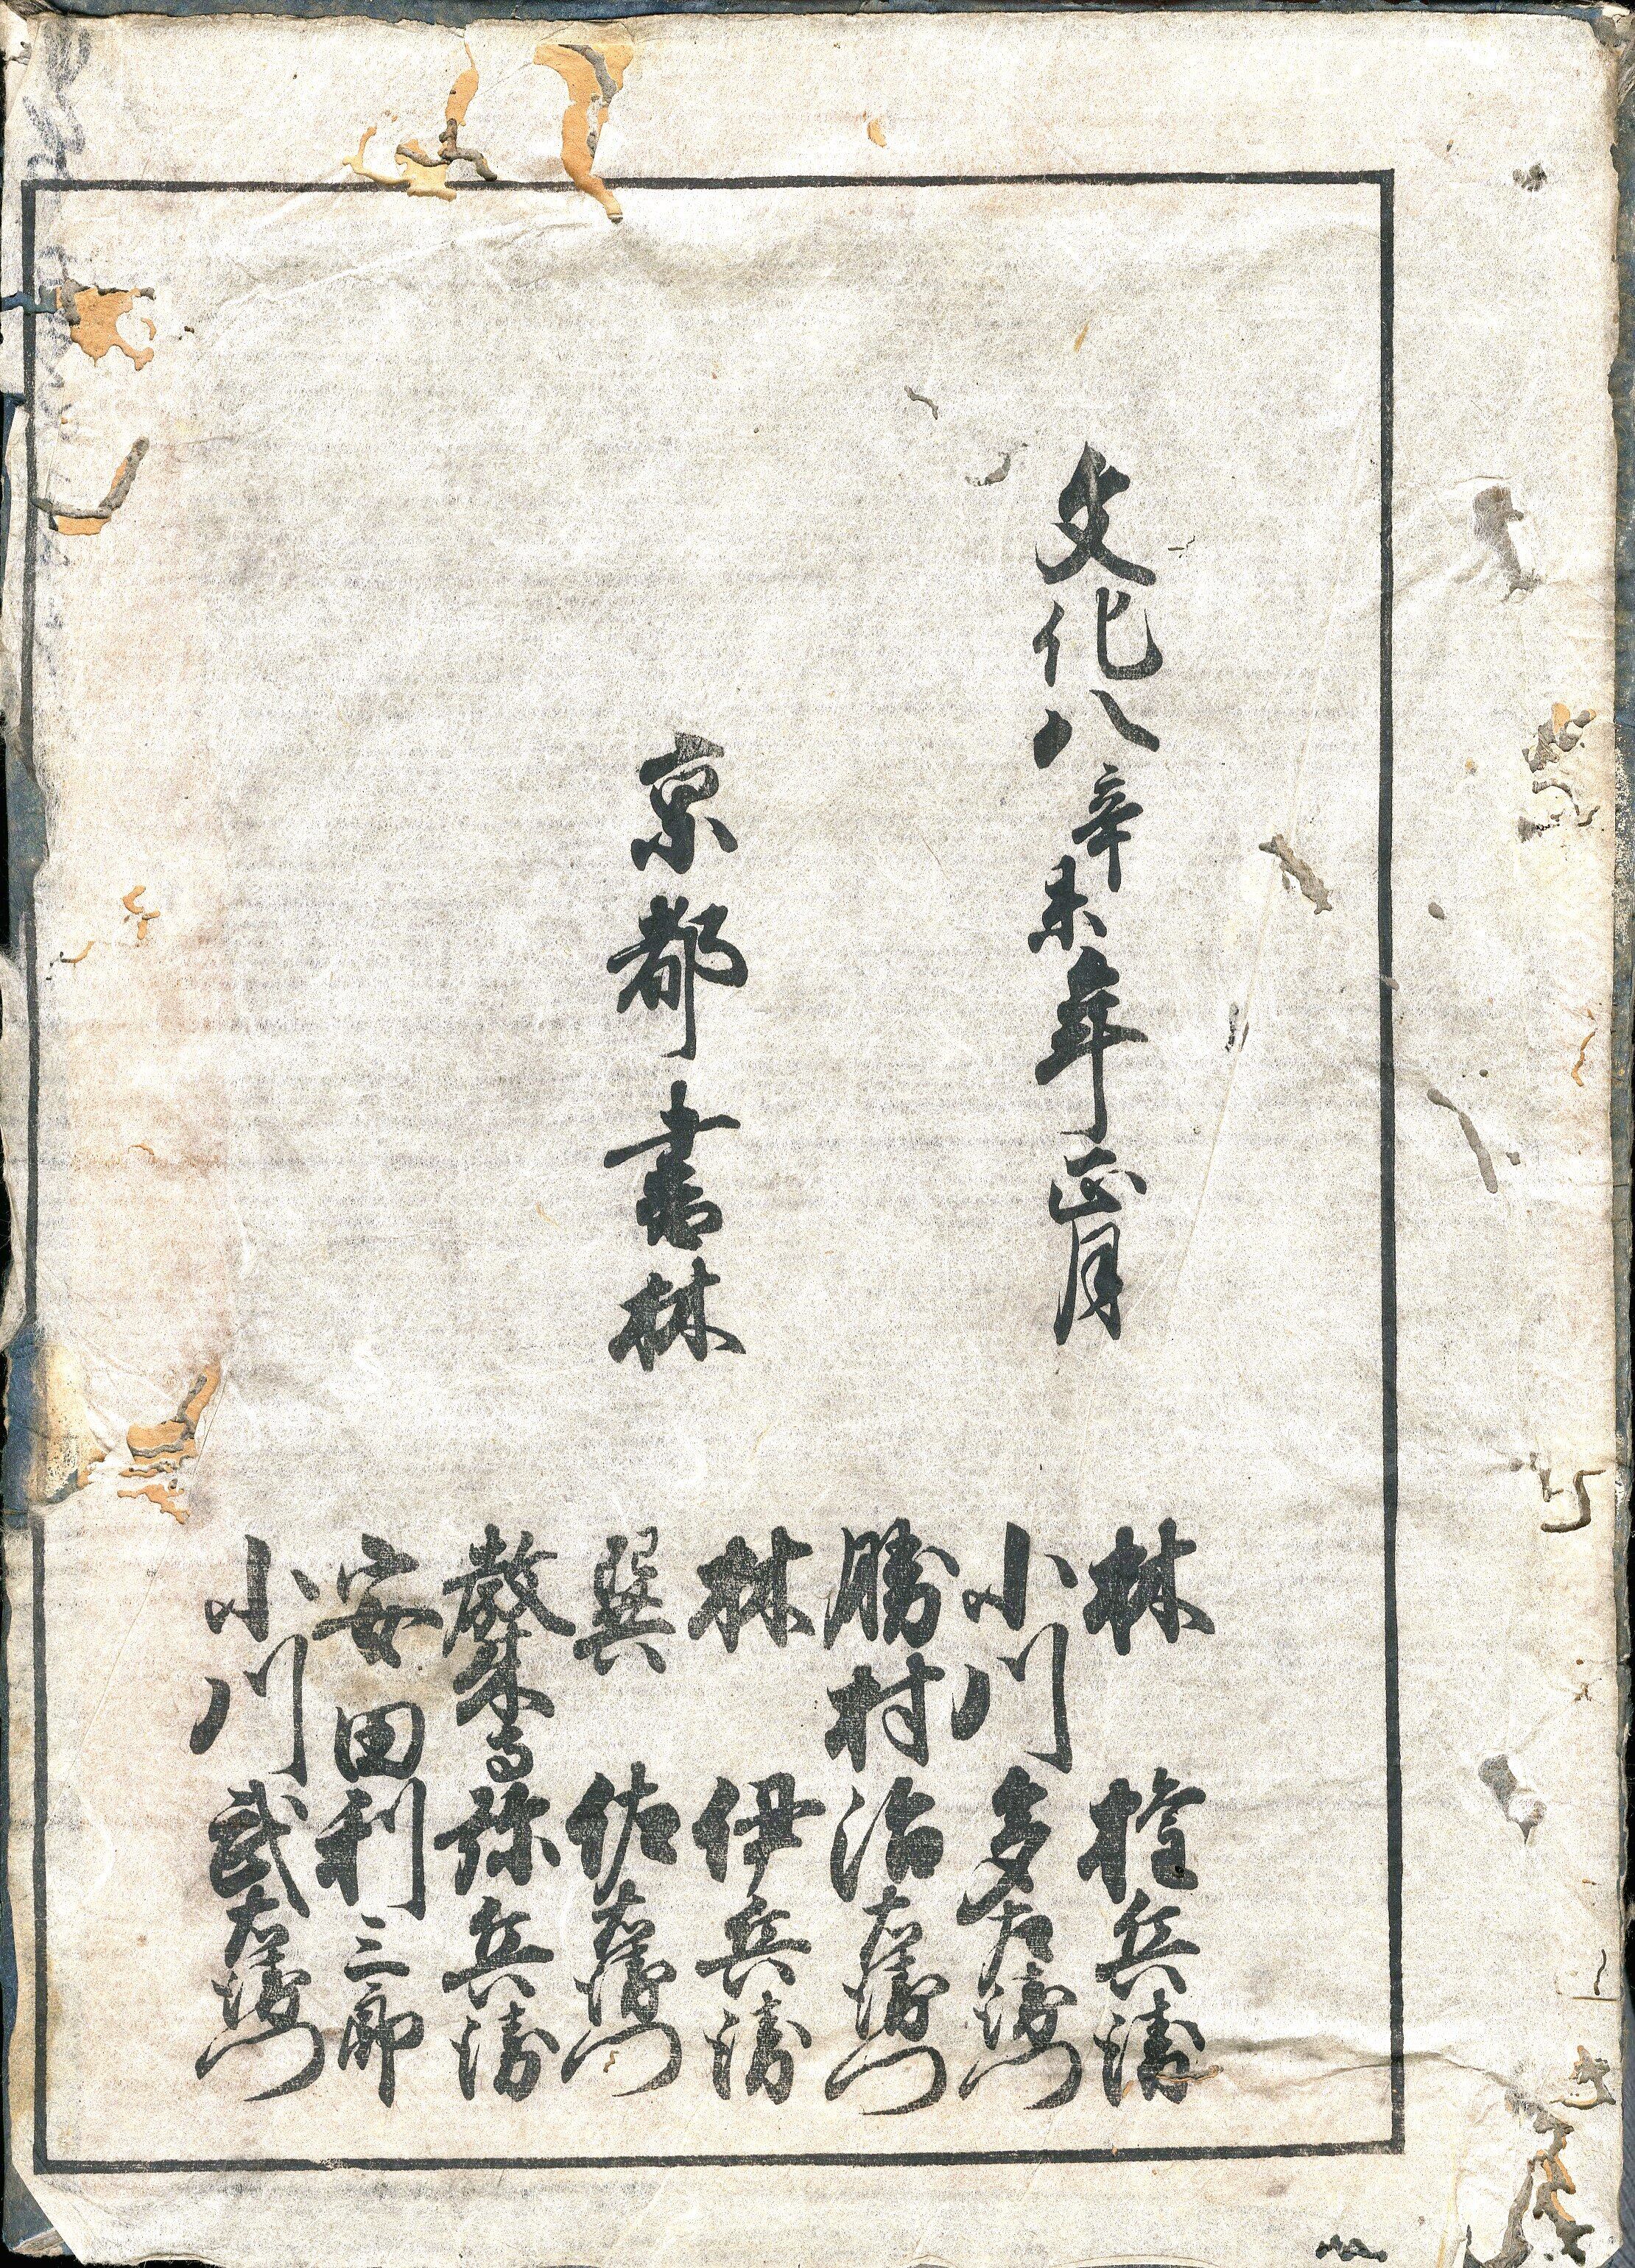 文化八辛未年正月
京都書林
林 権兵衛
小川多左衛門
勝村治右衛門
林 伊兵衛
巽 佐右衛門
弥兵衛
安田利三郎
小川武右衛門